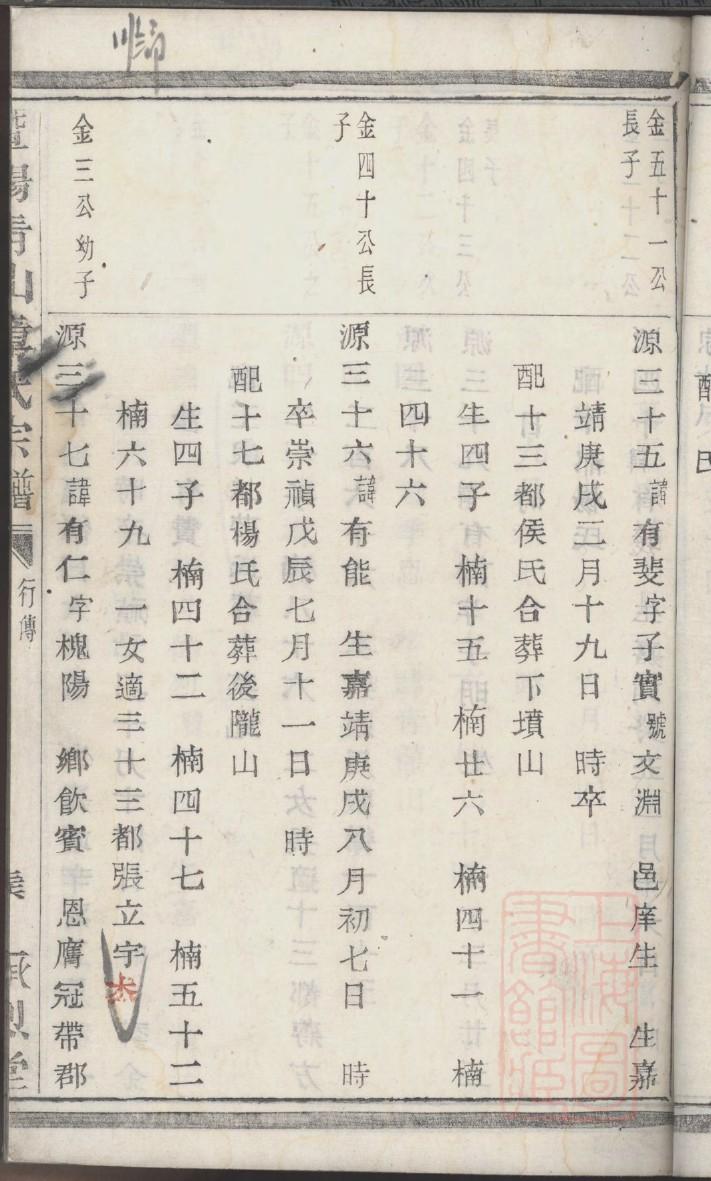 金五十一公
長子
源三十五諱有斐字子實號文淵 邑庠生 生嘉
靖庚戌二月十九日 時卒
配十三都侯氏合葬下墳山
生四子 楠十五 楠廿六 楠四十一 楠
四十六
金四十公長
子
源三十六諱有能 生嘉靖庚戌八月初七日 時
卒崇禎戊辰七月十一日 時
配十七都楊氏合葬後隴山
生四子 楠四十二 楠四十七 楠五十二
楠六十九 一女適三十三都張立宇
金三公幼子
源三十七諱有仁字槐陽 鄉飲賓 恩膺冠帶郡
氏宗譜
行傳
上海圖書館藏
配 氏